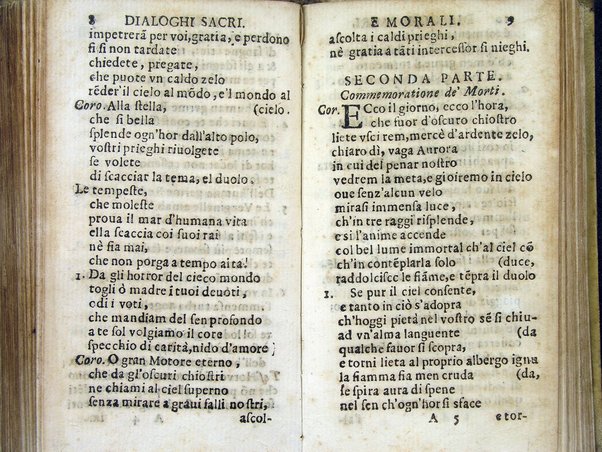 8 DIALOGHI SACRI.
impetrerà per voi, gratia, e perdono
si si non tardate
chiedete, pregate,
che puote vn caldo zelo
rēder'il cielo al mōdo, e'l mondo al
Coro. Alla stella, (cielo.
che si bella
splende ogn'hor dall'alto polo,
vostri prieghi riuolgete
se volete
di scacciar la tema, el duolo.
Le tempeste,
che moleste
proua il mar d'humana vita
ella scaccia coi suoi rai
nè fia mai,
che non porga a tempo aita!
1. Da gli horror del cieco mondo
togli ò madre i tuoi deuoti,
odi i voti,
che mandiam del sen profondo
a te sol volgiamo il core
specchio di carità, nido d'amore;
Coro. O gran Motore eterno,
che da gl'oscuri chiostri
ne chiami al ciel superno
senza mirare a graui falli nostri,
A 4 ascol-
E MORALI. 9
ascolta i caldi prieghi,
nè gratia a tāti intercessor si nieghi.
SECONDA PARTE.
Commemoratione de' Morti.
Cor. ECco il giorno, ecco l'hora,
che fuor d'oscuro chiostro
liete vscirem, mercè d'ardente zelo,
chiaro dì, vaga Aurora
in cui del penar nostro
vedrem la meta, e gioiremo in cielo
oue senz'alcun velo
mirasi immensa luce,
ch'in tre raggi risplende,
e si l'anime accende
col bel lume immortal ch'al ciel cō
ch'in contēplarla solo (duce,
raddolcisce le fiāme, e tēpra il duolo
1. Se pur il ciel consente,
e tanto in ciò s'adopra
ch'hoggi pietà nel vostro sē si chiu-
ad vn'alma languente (da
qualche fauor si scopra,
e torni lieta al proprio albergo ignu
la fiamma fia men cruda (da,
se spira aura di spene
nel sen ch'ogn'hor si sface
A 5 e tor-